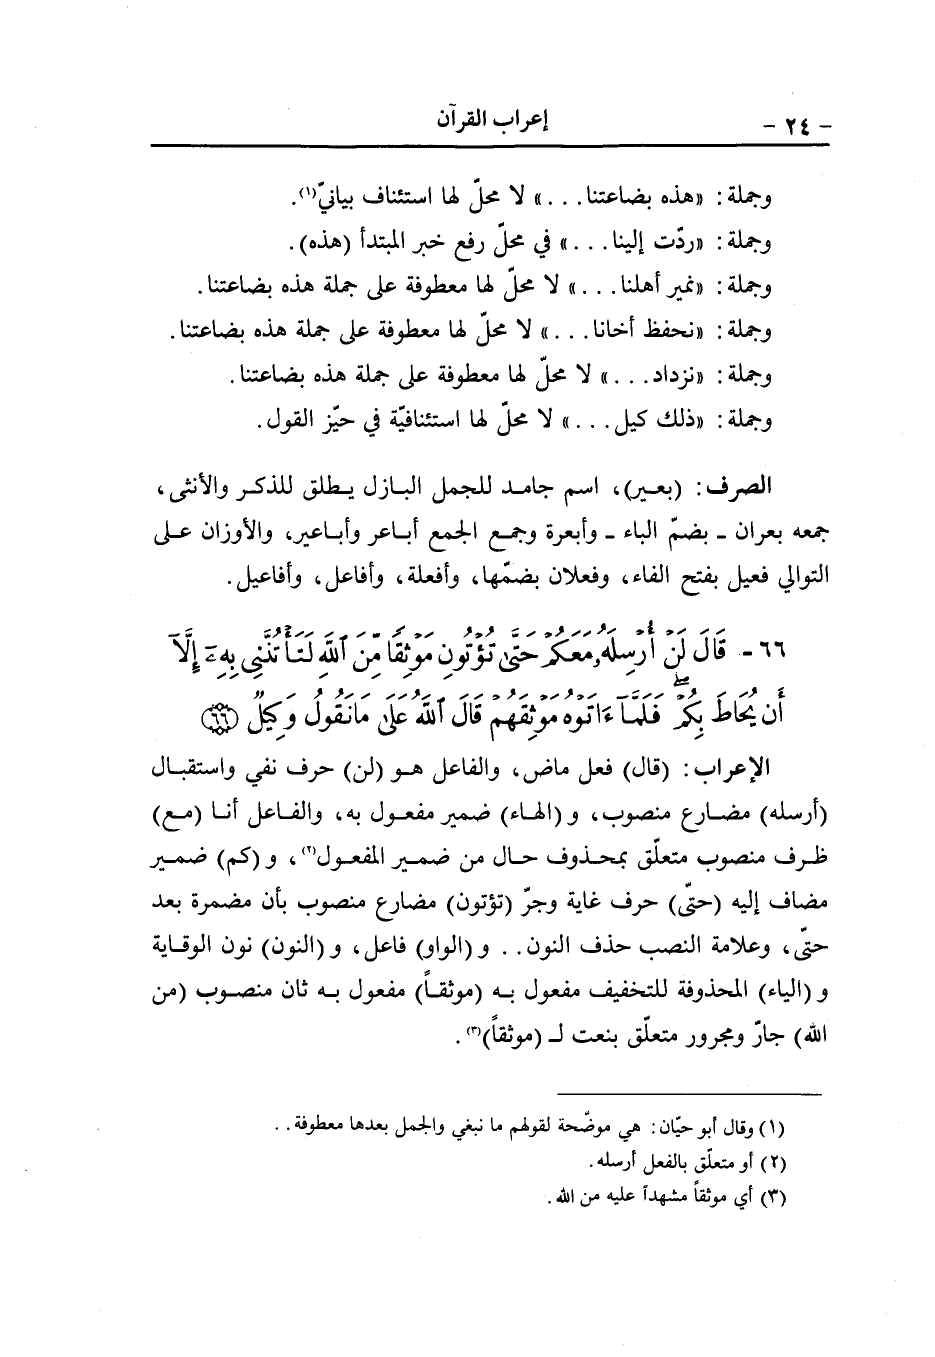 - ٢٤ -
إعراب القرآن
وجملة: «هذه بضاعتنا...» لا محلّ لها استئناف بيانيّ(١).
وجملة: «ردّت إلينا...» في محلّ رفع خبر المبتدأ (هذه).
وجملة: «نمير أهلنا...» لا محلّ لها معطوفة على جملة هذه بضاعتنا.
وجملة: «نحفظ أخانا...» لا محلّ لها معطوفة على جملة هذه بضاعتنا.
وجملة: «نزداد...» لا محلّ لها معطوفة على جملة هذه بضاعتنا.
وجملة: «ذلك كيل...» لا محلّ لها استئنافيّة في حيّز القول.
الصرف: (بعير)، اسم جامد للجمل البازل يطلق للذكر والأنثى،
جمعه بعران ـ بضمّ الباء ـ وأبعرة وجمع الجمع أباعر وأباعير، والأوزان على
التوالي فعيل بفتح الفاء، وفعلان بضمّها، وأفعلة، وأفاعل، وأفاعيل.
٦٦ - قَالَ لَنْ أُرْسِلَهُۥ مَعَكُمْ حَتَّىٰ تُؤْتُونِ مَوْثِقًا مِّنَ ٱللَّهِ لَتَأْتُنَّنِى بِهِۦٓ إِلَّآ
أَن يُحَاطَ بِكُمْ ۖ فَلَمَّآ ءَاتَوْهُ مَوْثِقَهُمْ قَالَ ٱللَّهُ عَلَىٰ مَا نَقُولُ وَكِيلٌ ﴿٦٦﴾
الإعراب: (قال) فعل ماض، والفاعل هو (لن) حرف نفي واستقبال
(أرسله) مضارع منصوب، و (الهاء) ضمير مفعول به، والفاعل أنا (مع)
ظرف منصوب متعلّق بمحذوف حال من ضمير المفعول(٢)، و (كم) ضمير
مضاف إليه (حتّى) حرف غاية وجرّ (تؤتون) مضارع منصوب بأن مضمرة بعد
حتّى، وعلامة النصب حذف النون.. و (الواو) فاعل، و (النون) نون الوقاية
و (الياء) المحذوفة للتخفيف مفعول به (موثقاً) مفعول به ثان منصوب (من
الله) جارّ ومجرور متعلّق بنعت لـ (موثقاً)(٣).
(١) وقال أبو حيّان: هي موضّحة لقولهم ما نبغي والجمل بعدها معطوفة..
(٢) أو متعلّق بالفعل أرسله.
(٣) أي موثقاً مشهداً عليه من الله.